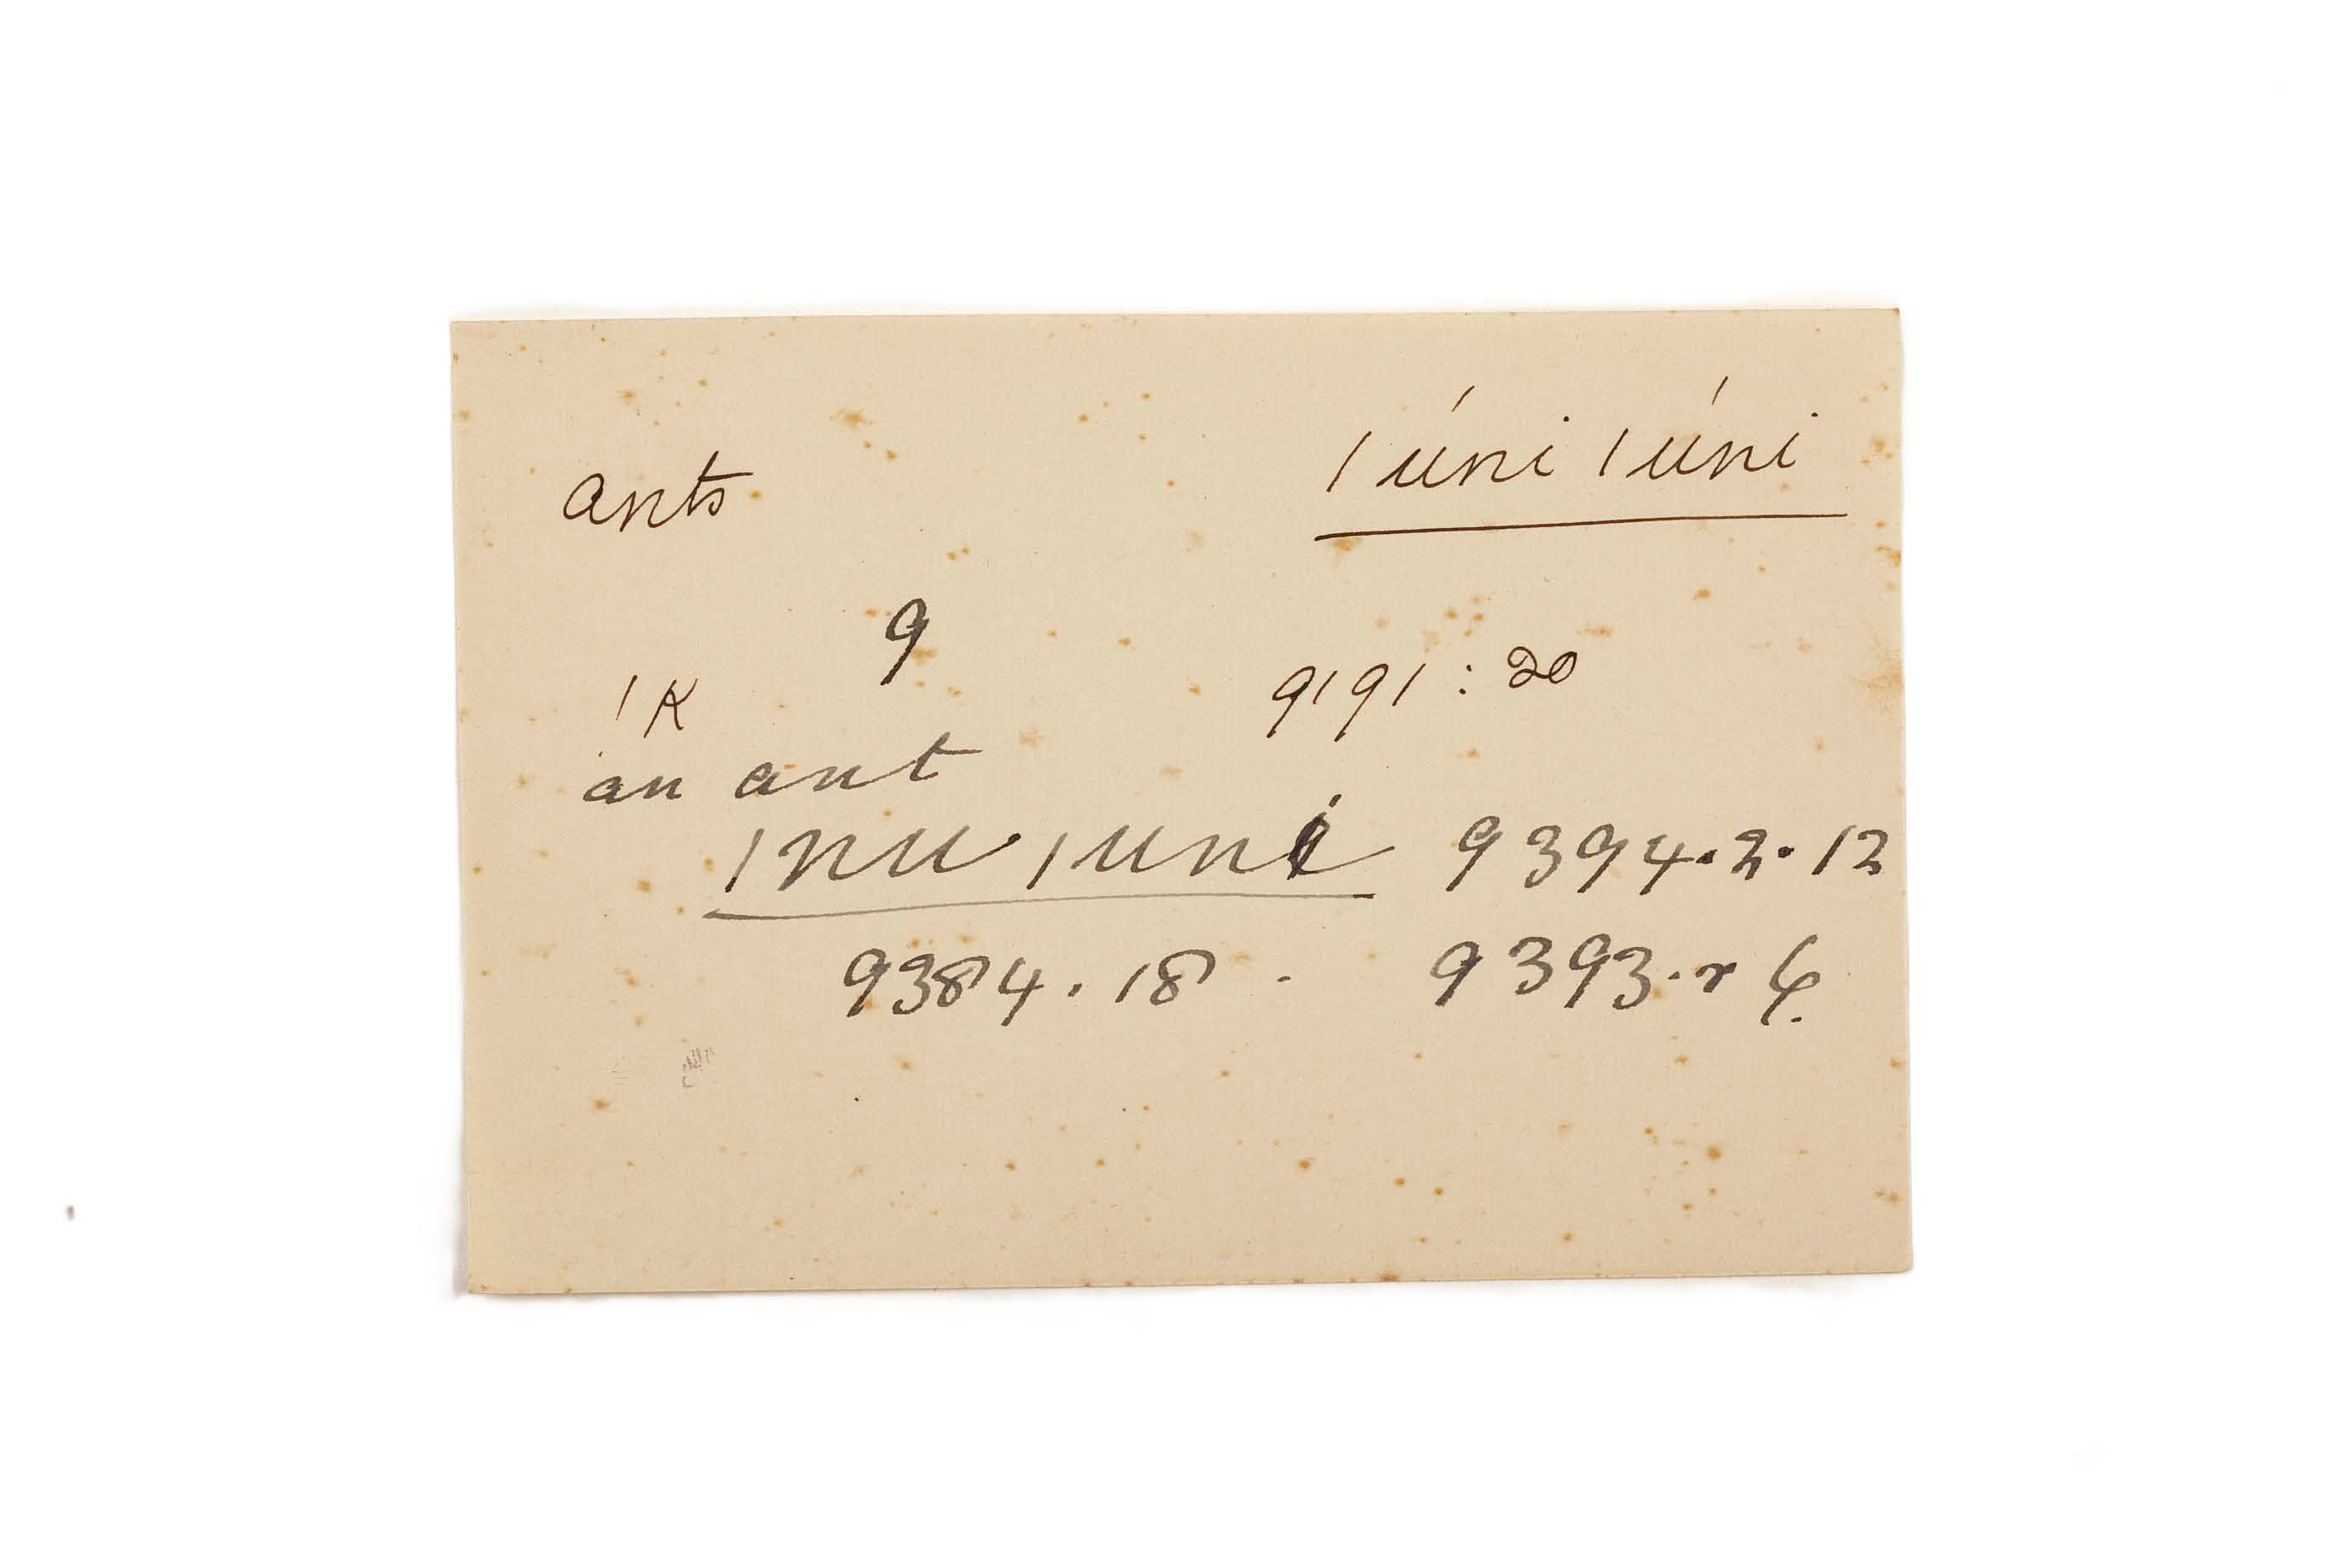 ants. |úni |úni
9
|K 9191 : 20
an ant
|nu |uni 9394.2.12
9384.18. 9393.r